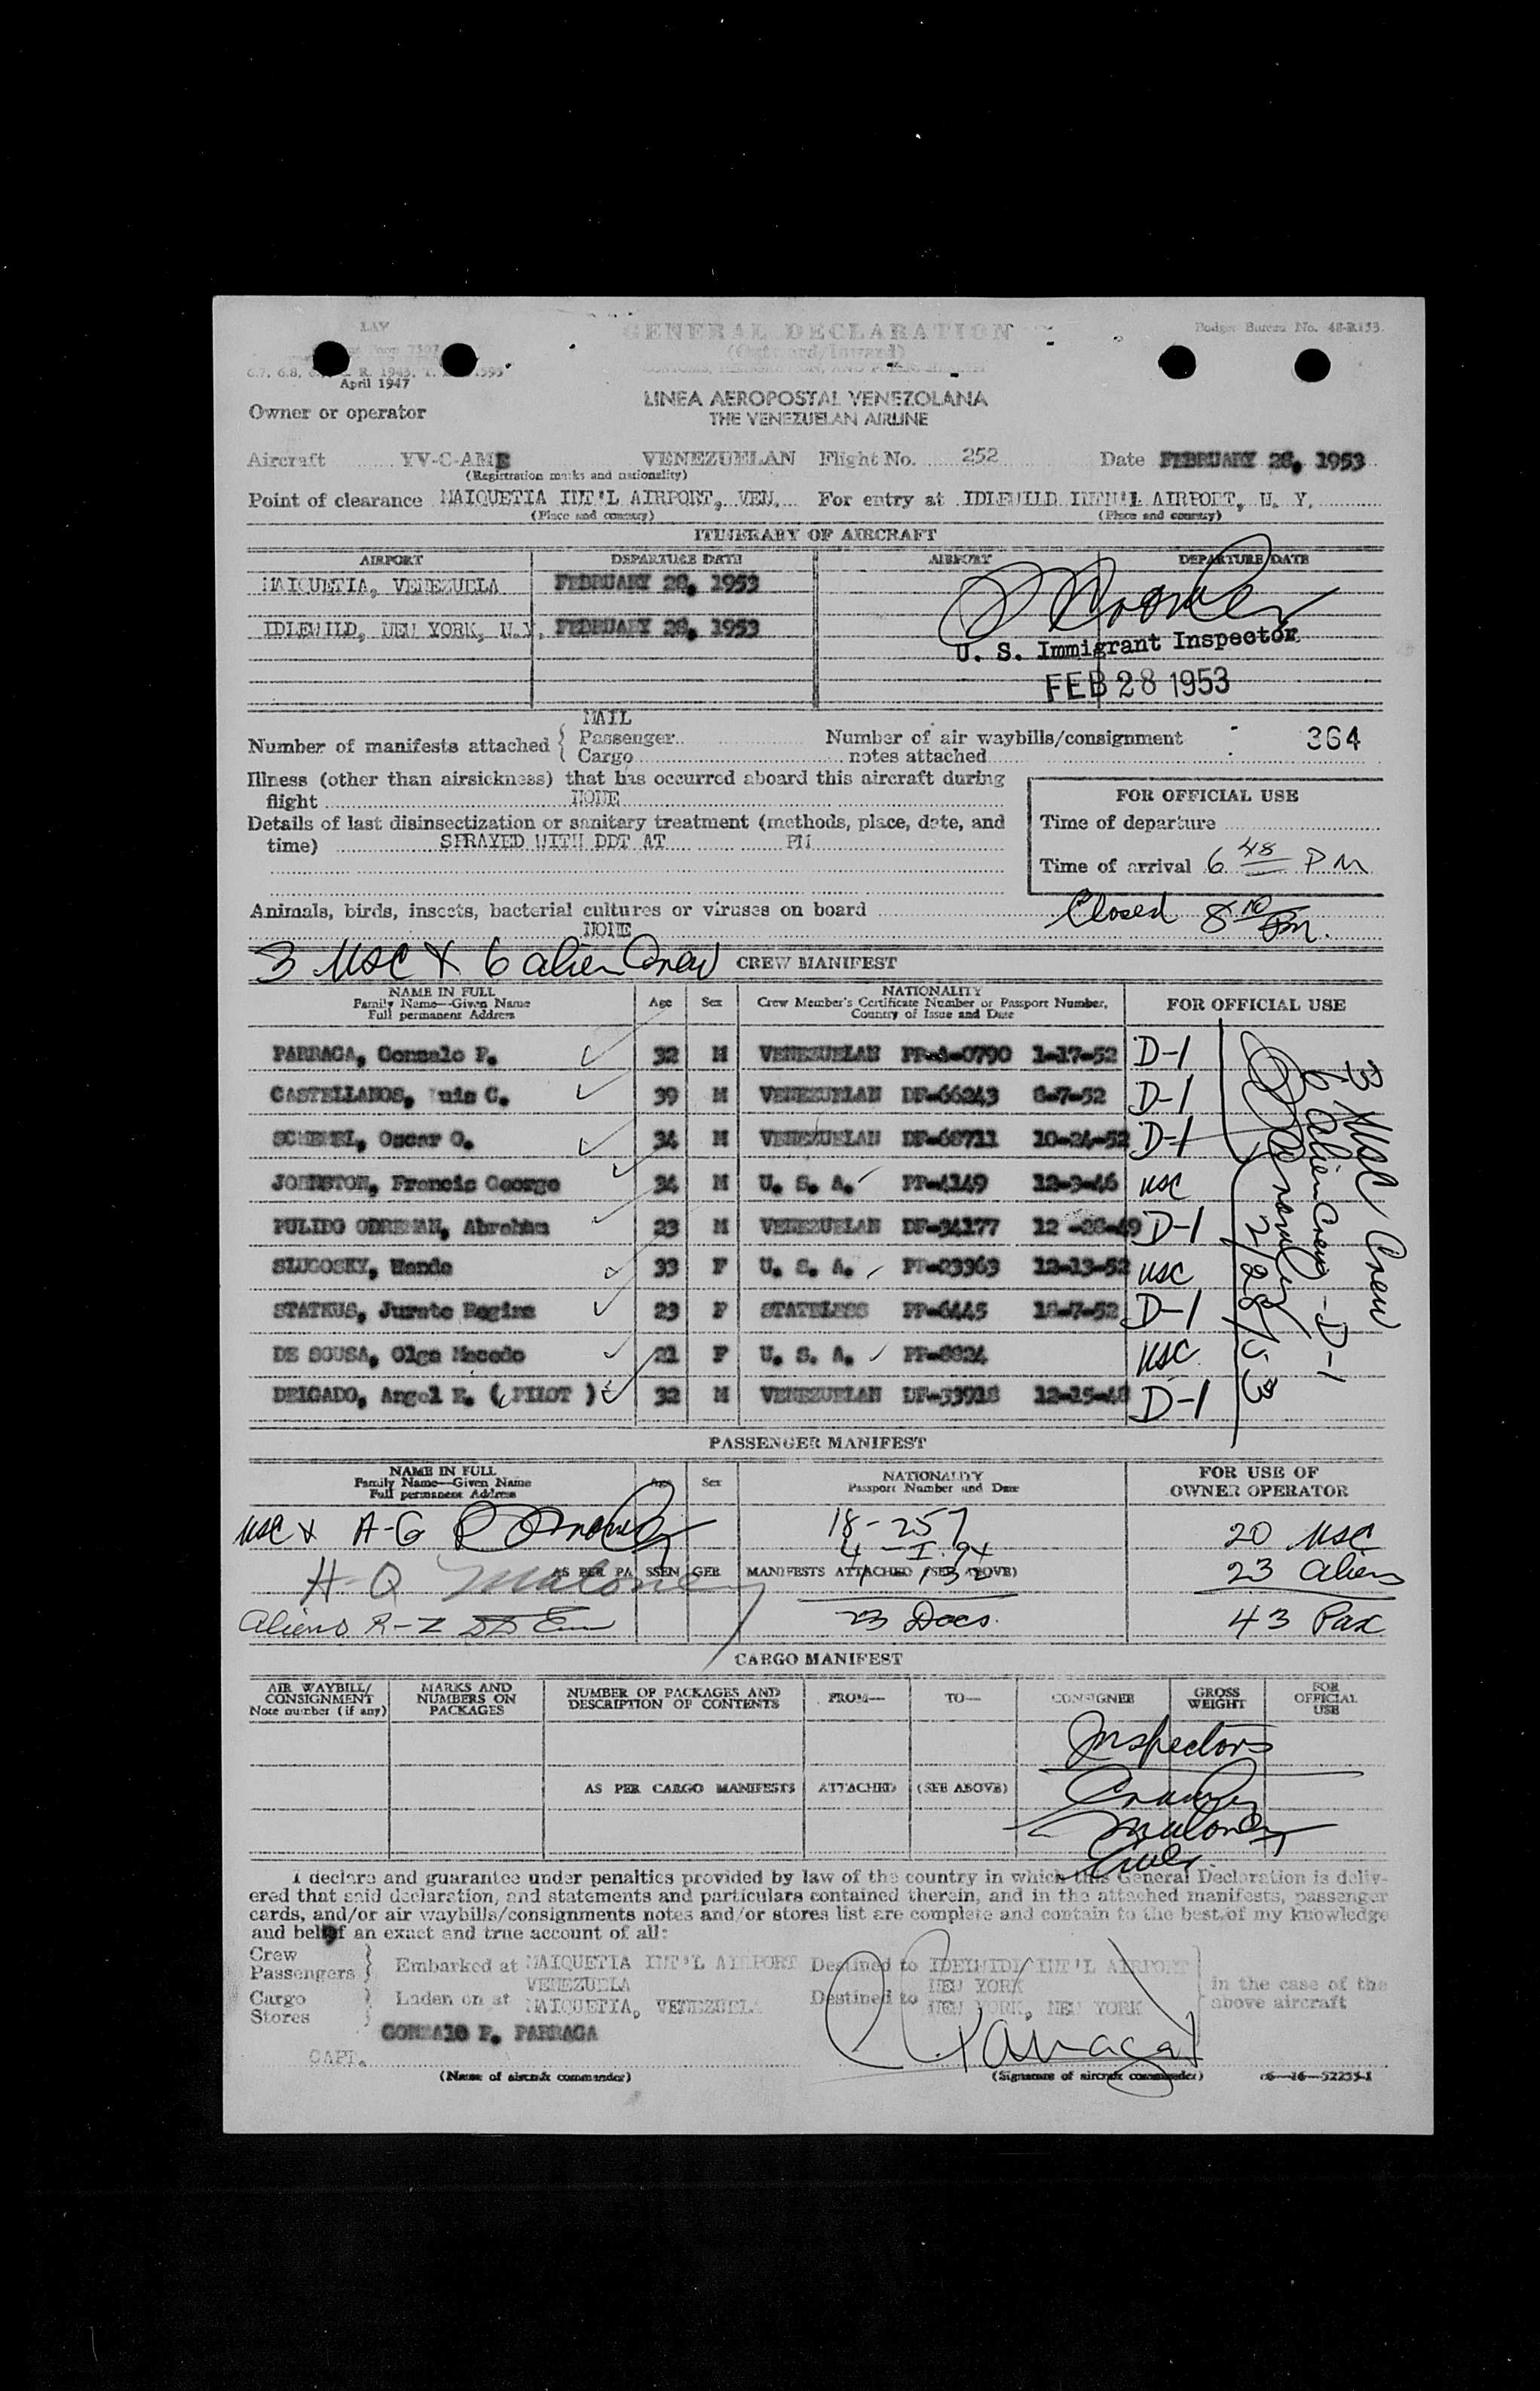 LAV
GENERAL DECLARATION
Budget Bureau No. 48-R153.
(Outward/Inward)
6.7, 6.8,
R. 1945, T.
April 1947
Owner or operator
LINEA AEROPOSTAL VENEZOLANA
THE VENEZUELAN AIRLINE
Aircraft YV-C-AME VENEZUELAN Flight No. 252 Date FEBRUARY 28, 1953
(Registration marks and nationality)
Point of clearance MAIQUETIA INT'L AIRPORT, VEN. For entry at IDLEWILD INTN'L AIRPORT, N. Y.
(Place and country) (Place and country)
ITINERARY OF AIRCRAFT
AIRPORT DEPARTURE DATE AIRPORT DEPARTURE DATE
MAIQUETIA, VENEZUELA FEBRUARY 28, 1953
IDLEWILD, NEW YORK, N.Y. FEBRUARY 28, 1953
U. S. Immigrant Inspector
FEB 28 1953
MAIL
Number of manifests attached { Passenger Number of air waybills/consignment 364
Cargo notes attached
Illness (other than airsickness) that has occurred aboard this aircraft during
flight NONE
FOR OFFICIAL USE
Details of last disinsectization or sanitary treatment (methods, place, date, and
Time of departure
time) SPRAYED WITH DDT AT PM
Time of arrival 6 48 PM
Animals, birds, insects, bacterial cultures or viruses on board
Closed 8 10 Pm.
NONE
3 USC + 6 alien Crew CREW MANIFEST
NAME IN FULL
Family Name—Given Name
Full permanent Address
Age Sex
NATIONALITY
Crew Member's Certificate Number or Passport Number,
Country of Issue and Date
FOR OFFICIAL USE
PARRAGA, Gonzalo P. 32 M VENEZUELAN PP-A-0790 1-17-52 D-1
CASTELLANOS, Luis C. 39 M VENEZUELAN DF-66243 8-7-52 D-1
Oscar O. 34 M VENEZUELAN DF-68711 10-24-52 D-1
JOHNSTON, Francis George 34 M U. S. A. PP-4149 12-9-46 USC
PULIDO Abraham 23 M VENEZUELAN DF-34177 12-28-49 D-1
SLUCOSKY, Wanda 33 F U. S. A. PP-23963 12-13-52 USC
STATKUS, Jurate Regina 23 F STATELESS PP-6445 D-1
DE SOUSA, Olga Macedo 21 F U. S. A. PP-8824 USC
DELGADO, Angel E. ( PILOT ) 32 M VENEZUELAN DF-33918 12-15-48 D-1
3 USC Crew
6 Alien Crew - D-1
2/28/53
PASSENGER MANIFEST
NAME IN FULL
Family Name—Given Name
Full permanent Address
Age Sex
NATIONALITY
Passport Number and Date
FOR USE OF
OWNER OPERATOR
USC + A-G 18-257 20 USC
4 - I.94
H-Q Maloney AS PER PASSENGER MANIFESTS ATTACHED (SEE ABOVE) 23 Aliens
Aliens R-Z 23 Docs. 43 Pax
CARGO MANIFEST
AIR WAYBILL/
CONSIGNMENT
Note number (if any)
MARKS AND
NUMBERS ON
PACKAGES
NUMBER OF PACKAGES AND
DESCRIPTION OF CONTENTS
FROM— TO— CONSIGNEE
GROSS
WEIGHT
FOR
OFFICIAL
USE
Inspectors
AS PER CARGO MANIFESTS ATTACHED (SEE ABOVE)
Maloney
I declare and guarantee under penalties provided by law of the country in which this General Declaration is deliv-
ered that said declaration, and statements and particulars contained therein, and in the attached manifests, passenger
cards, and/or air waybills/consignments notes and/or stores list are complete and contain to the best of my knowledge
and belief an exact and true account of all:
Crew
Passengers } Embarked at MAIQUETIA INT'L AIRPORT Destined to INT'L AIRPORT
VENEZUELA NEW YORK
in the case of the
above aircraft
Cargo
Stores } Laden on at MAIQUETIA, VENEZUELA Destined to NEW YORK, NEW YORK
GONZALO P. PARRAGA
CAPT.
(Name of aircraft commander) (Signature of aircraft commander) 16—52255-1